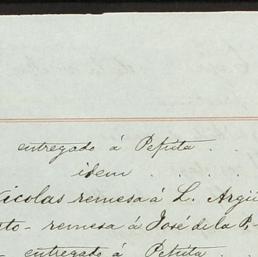 entregado á Pepita . .
idem . . . .
Nicolas remesa á L. Argü
to - remesa á José de la P,
- entregado á Pepita . .